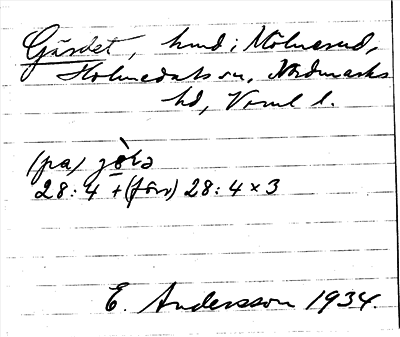 Gärdet, hmd i Mölnerud,
Holmedals sn, Nordmarks
hd, Verml l.
(på) jö̀ḷə
28:4 + (förv) 28:4 x 3
E. Andersson 1934.